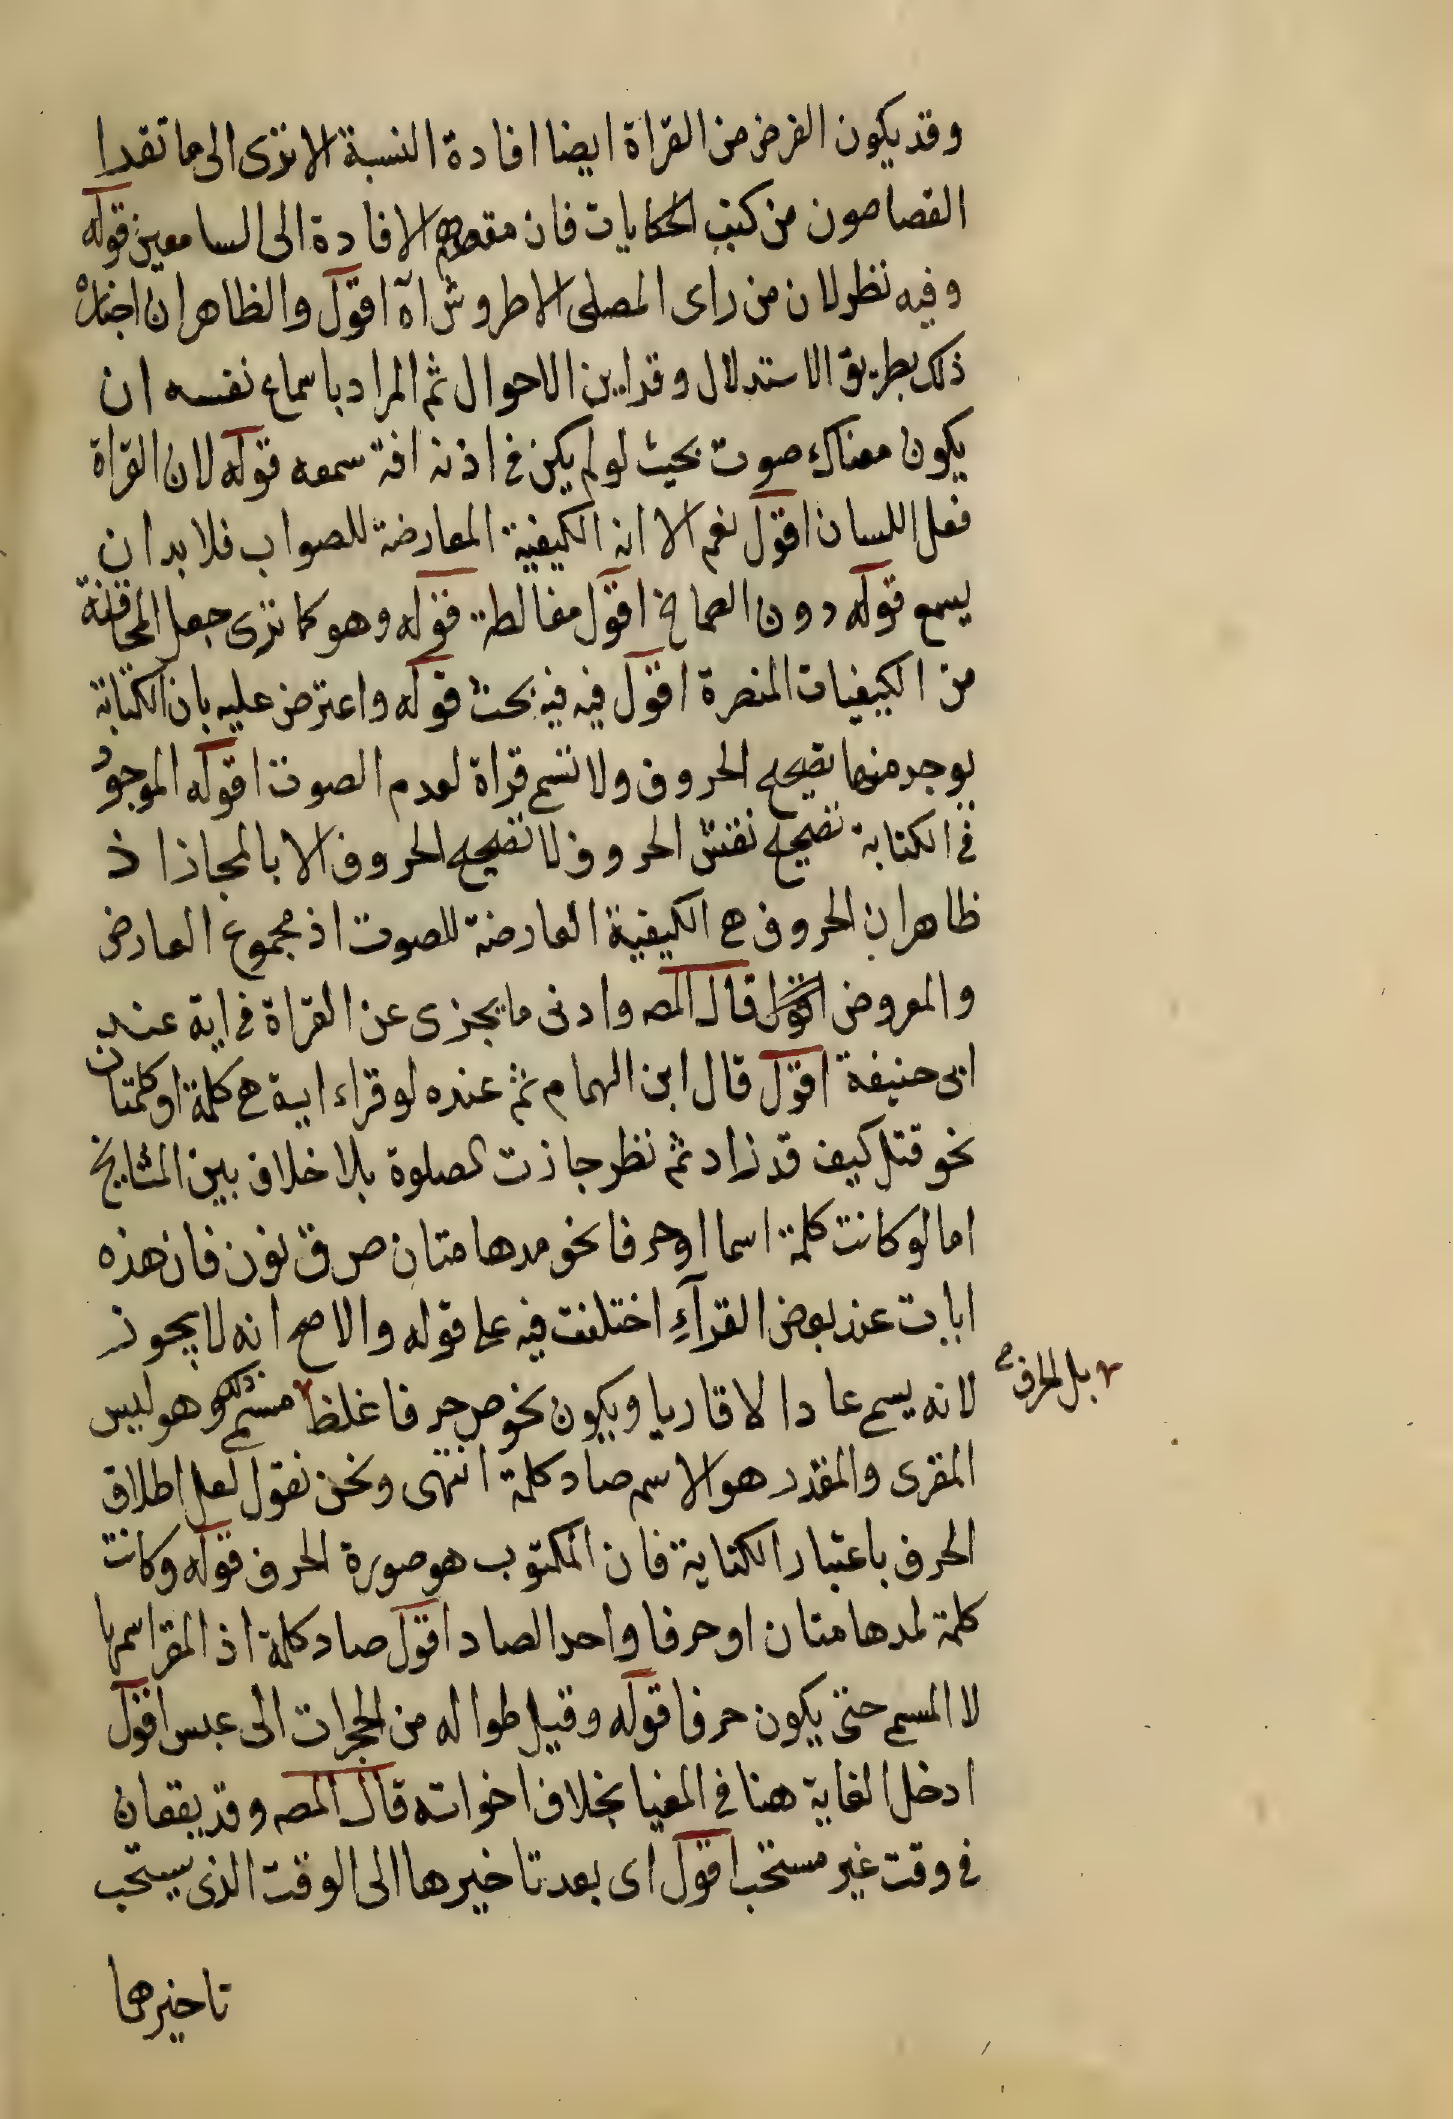 وقد يكون الغرض من القراة ايضا افادة النسبة الا نرى الى ما تقدا
القصاصون من كتب الحكايات فان مقصدهم الافادة الى السامعين قوله
وفيه نظر لان من راى المصلى الاطروش اه اقول والظاهر ان اخباره
ذلك بطريق الاستدلال وقراين الاحوال ثم المراد باسماع نفسه ان
يكون هناك صوت بحيث لو لم يكن فى اذنه افة سمعه قوله لان القراة
فعل اللسان اقول نعم الا انه الكيفية المعارضة للصواب فلا بد ان
يسمع قوله دون الصماخ اقول مغالطة قوله وهو كما نرى جعل المخافتة
من الكيفيات المنصرة اقول فيه فيه بحث قوله واعترض عليه بان الكتابة
يوجد منها تصحيح الحروف ولا تسمى قراة لعدم الصوت اقوله الموجود
فى الكتابة تصحيح نقش الحروف لا تصحيح الحروف الا بالمجاز اذ
ظاهر ان الحروف هى الكيفية العارضة للصوت اذ مجموع العارض
والمعروض قال المصه وادنى ما يجزى عن القراة فى اية عند
ابى حنيفة اقول قال ابن الهمام ثم عنده لو قراء اية هى كلمة او كلمتان
نحو قتل كيف قدر زاد ثم نظر جازت الصلوة بلا خلاف بين المشايخ
اما لو كانت كلمة اسما او حرفا نحو مدهامتان ص ق نون فان هذه
ايات عند بعض القراء اختلفت فيه على قوله والاصح انه لا يجوز
لانه يسمى عادا لا قاريا ويكون نحو ص حرفا غلط مسمى ذلك وهو ليس
بل الحرف صح
المقرى والمقدر هو الاسم صاد كلمة انتهى ونحن نقول لعل اطلاق
الحرف باعتبار الكتابة فان المكتوب هو صورة الحرف قوله وكانت
كلمة لمدهامتان او حرفا واحد الصاد اقول صاد كلمة اذ المقرا اسمها
لا المسمى حتى يكون حرفا قوله وقيل طواله من الحجرات الى عبس اقول
ادخل الغاية هنا فى المغيا بخلاف اخواته قال المصه وقد يقعان
فى وقت غير مستحب اقول اى بعد تاخيرها الى الوقت الذى يستحب
تاخيرها